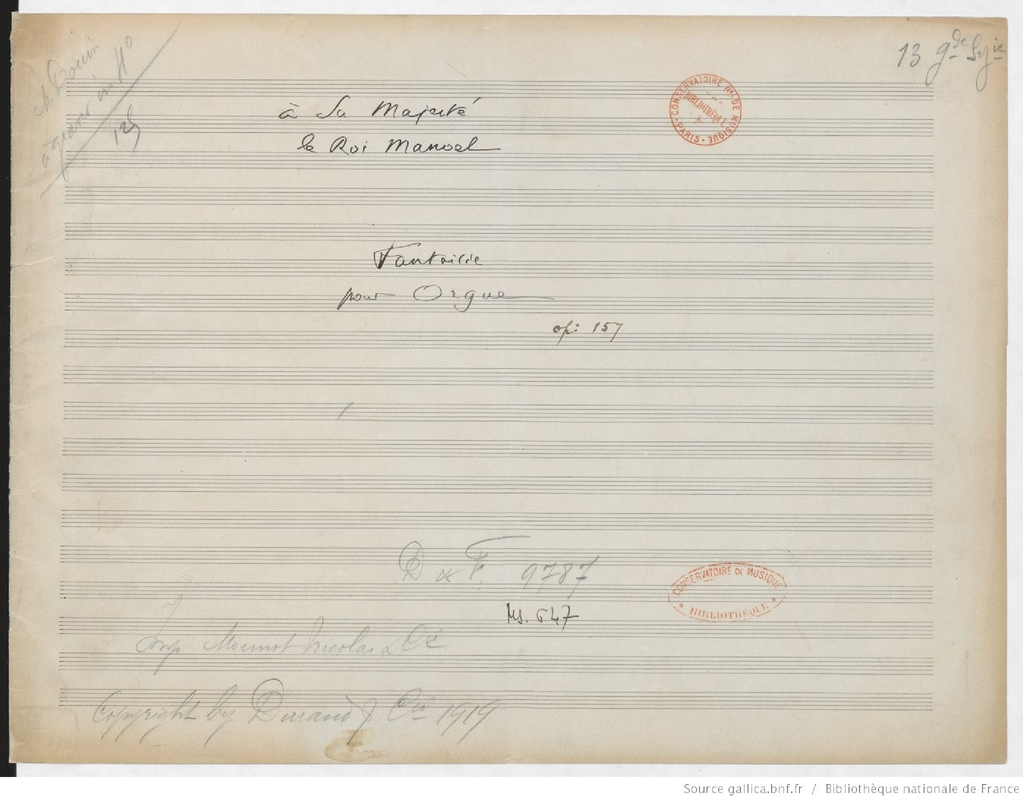 13 gde
à Sa Majesté
le Roi Manoel
CONSERVATOIRE Nal DE MUSIQUE
BIBLIOTHÈQUE
PARIS
125
Fantaisie
pour Orgue
op: 157
D & F. 9787
CONSERVATOIRE DE MUSIQUE
BIBLIOTHÈQUE
Ms. 647
Imp Mounot Nicolas & Cie
Copyright by Durand & Cie 1919
Source gallica.bnf.fr / Bibliothèque nationale de France